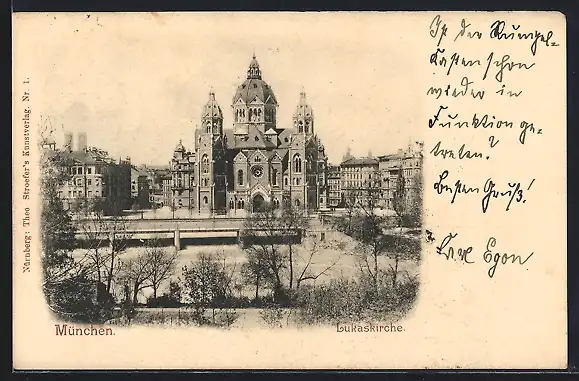 Nürnberg: Theo Stroefer's Kunstverlag. Nr. 1.
Ist der Runzel-
kasten schon
wieder in
Funktion ge-
treten?
Besten Gruß!
Egon
München.
Lukaskirche.